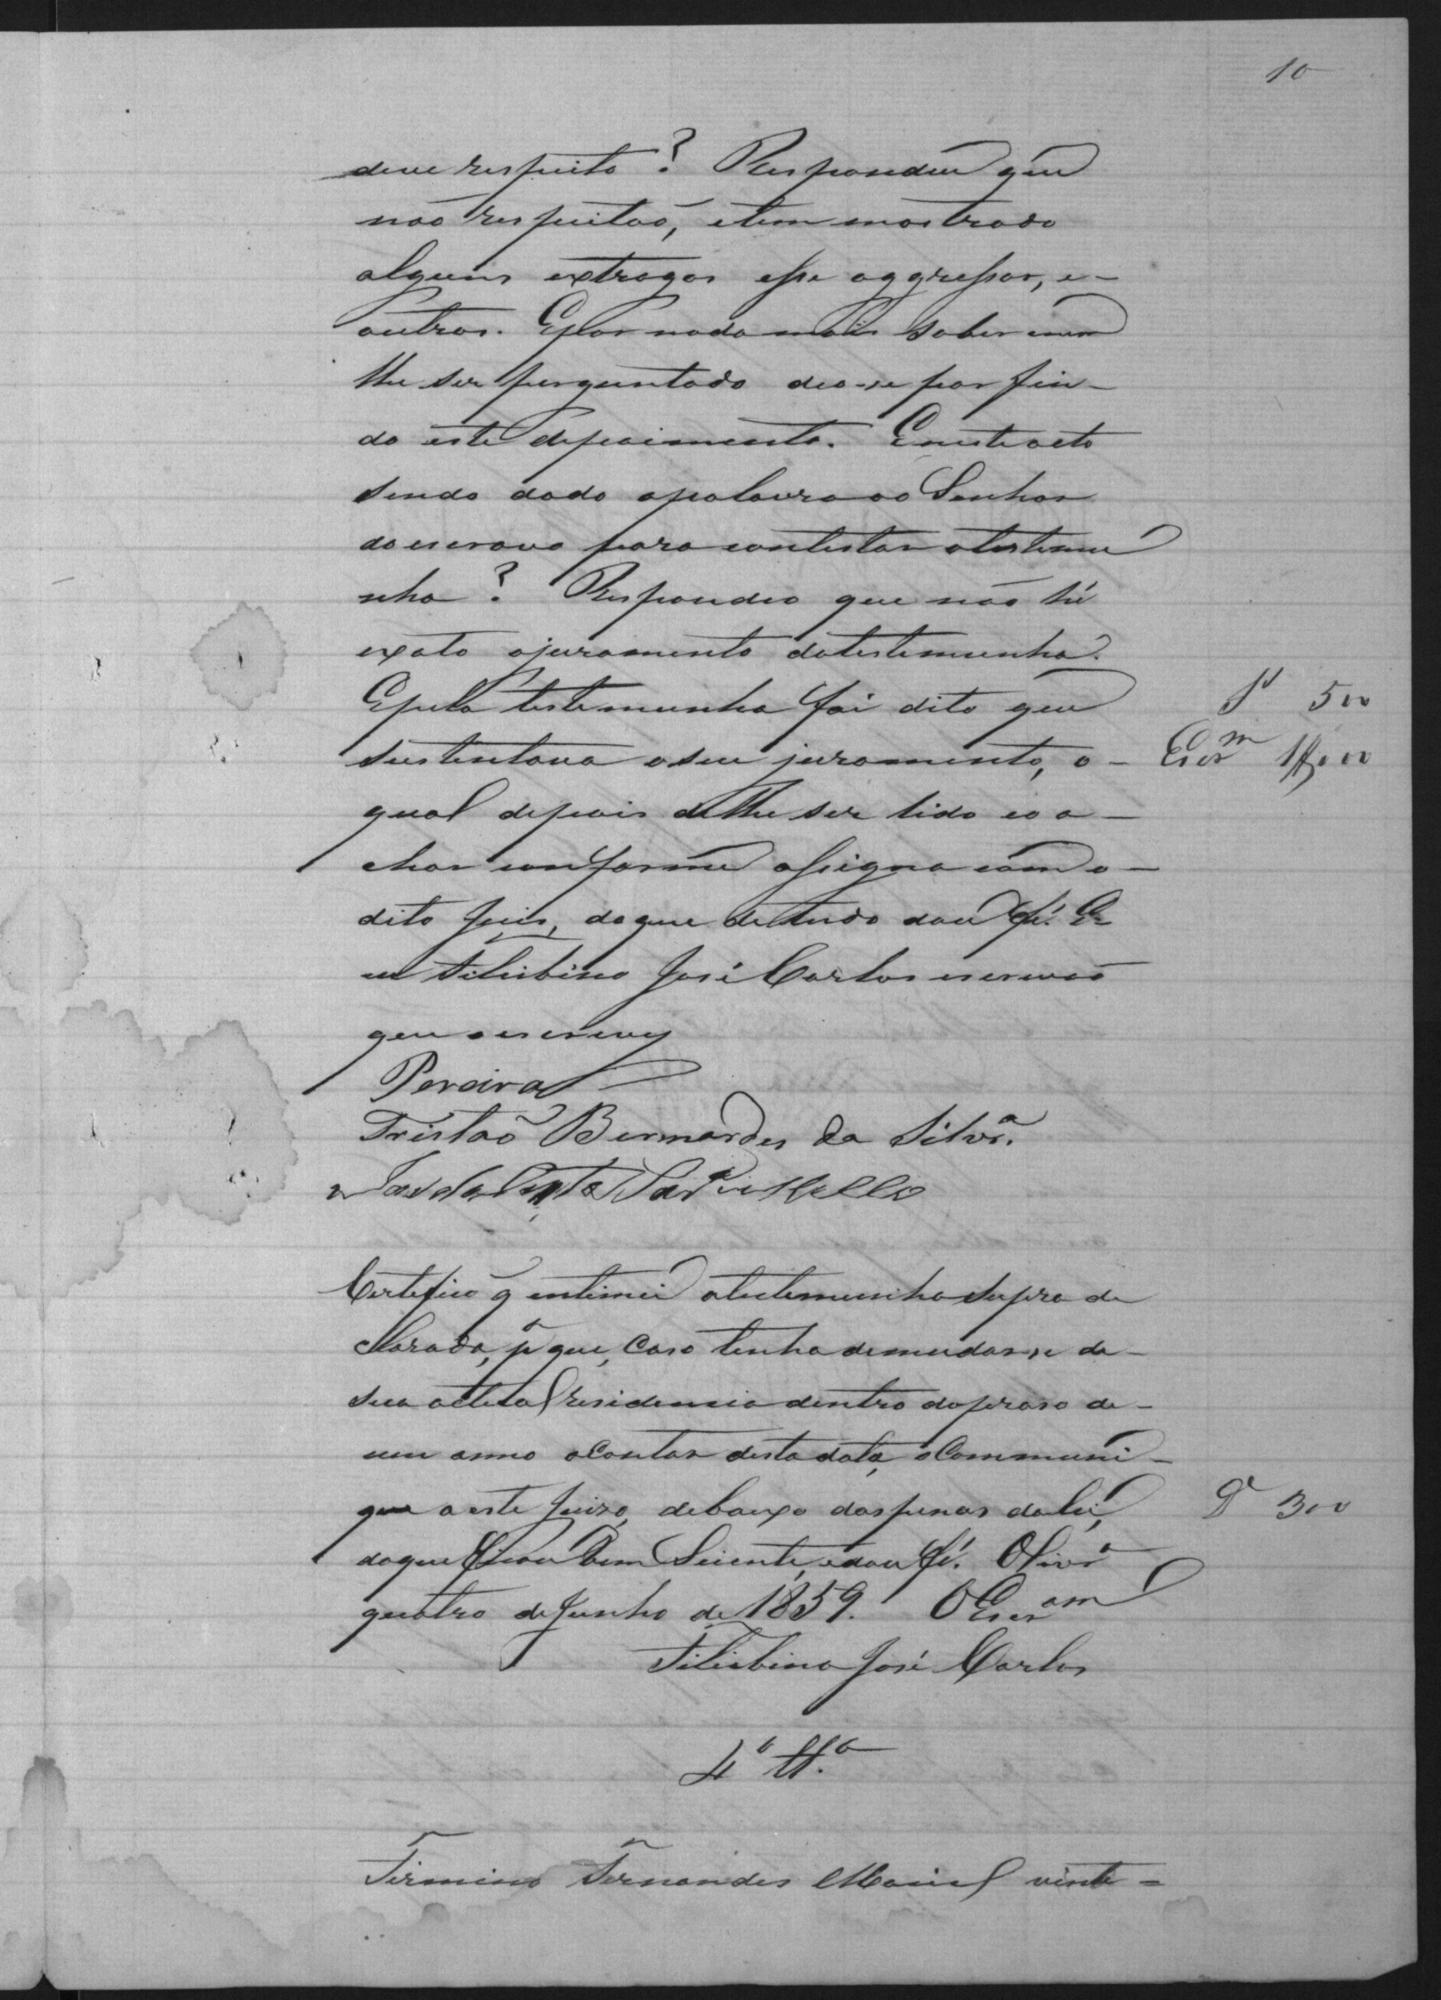 10
deve respeito? Respondeu que
não respeitão, e tem mostrado
alguns extragos esse aggressor, e
outros. E por nada mais saber e nem
lhe ser perguntado deo-se por fin-
do este depoimento. E neste acto
sendo dado a palavra ao Senhor
do escravo para contestar a testemu
nha? Respondeo que não hé
exato o juramento da testemunha.
E pela testemunha foi dito que
sustentava o seu juramento, o-
qual depois de lhe ser lido e o a-
char conforme assigna com o-
dito Juis, do que de tudo dou fé. E
eu Felisbino José Carlos escrivão
que o escrevy
Pereira
Tristão Bernardes da Silvrª.
Certefico q̃ entimei a testemunha supra de
clarada, pª que, caso tenha de mudar-se da-
sua actual residencia dentro do praso de-
um anno a contar desta data, o Communi-
que a este Juizo, debaixo das penas da lei,
do que ficou bem Sciente, e dou fé. Olivrª
quatro de Junho de 1859. O Escram
Felisbino José Carlos
4ª Ttª
Firmino Fernandes Maciel vinte=
J 500
Escm 1$000
D 300